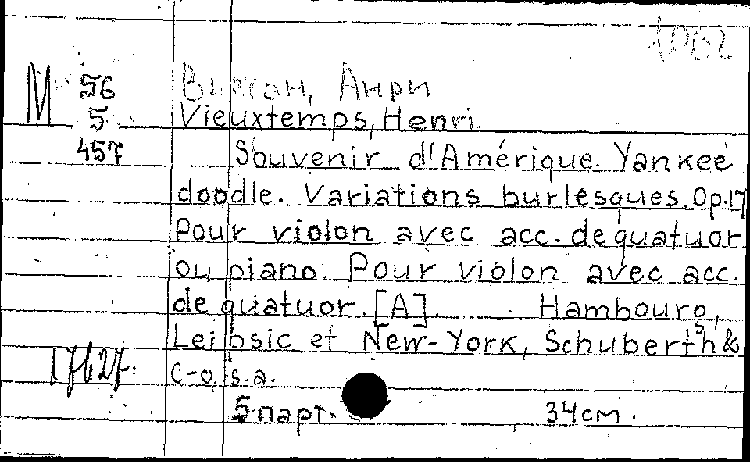 1962
M 56
5
457
Вьетан, Анри
Vieuxtemps, Henri
Souvenir d'Amérique. Yankee
doodle. Variations burlesques. Op. 17
Pour violon avec acc. de quatuor
ou piano. Pour violon avec acc.
de quatuor. [A] Hambourg,
Leipsic et New-York, Schuberth &
C-o, s.a.
17627.
5 парт. 34 см.